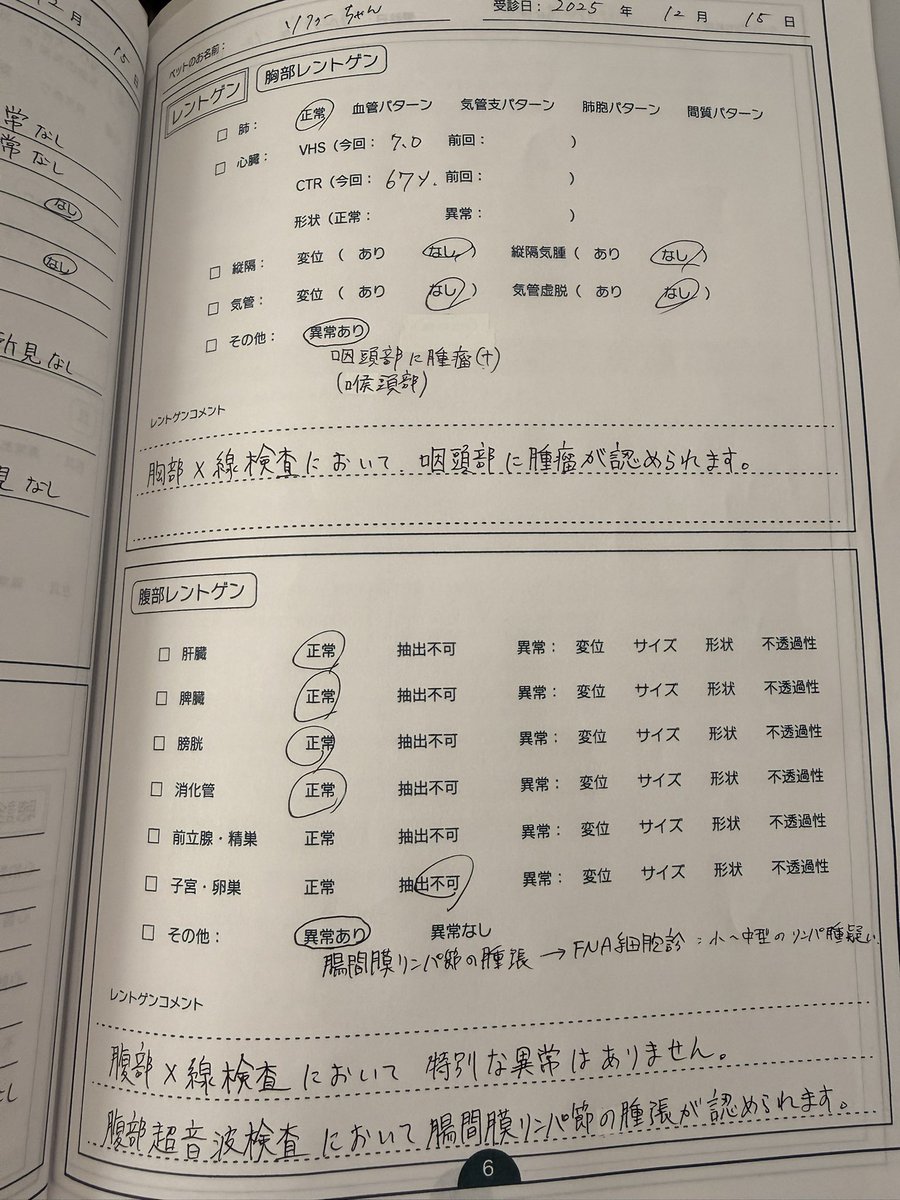 12月 15日
常なし
常なし
なし
なし
所見なし
見なし
ペットのお名前： ちゃん 受診日：2025年 12月 15日
レントゲン 胸部レントゲン
□ 肺： 正常 血管パターン 気管支パターン 肺胞パターン 間質パターン
□ 心臓： VHS（今回：7.0 前回： ）
CTR（今回：67%. 前回： ）
形状（正常： 異常： ）
□ 縦隔： 変位（ あり なし ） 縦隔気腫（ あり なし ）
□ 気管： 変位（ あり なし ） 気管虚脱（ あり なし ）
□ その他： 異常あり
咽頭部に腫瘤(+)
(喉頭部)
レントゲンコメント
胸部X線検査において、咽頭部に腫瘤が認められます。
腹部レントゲン
□ 肝臓 正常 抽出不可 異常： 変位 サイズ 形状 不透過性
□ 脾臓 正常 抽出不可 異常： 変位 サイズ 形状 不透過性
□ 膀胱 正常 抽出不可 異常： 変位 サイズ 形状 不透過性
□ 消化管 正常 抽出不可 異常： 変位 サイズ 形状 不透過性
□ 前立腺・精巣 正常 抽出不可 異常： 変位 サイズ 形状 不透過性
□ 子宮・卵巣 正常 抽出不可 異常： 変位 サイズ 形状 不透過性
□ その他： 異常あり 異常なし
腸間膜リンパ節の腫張→FNA細胞診：小〜中型のリンパ腫疑い.
レントゲンコメント
腹部X線検査において 特別な異常はありません。
腹部超音波検査において腸間膜リンパ節の腫張が認められます。
6